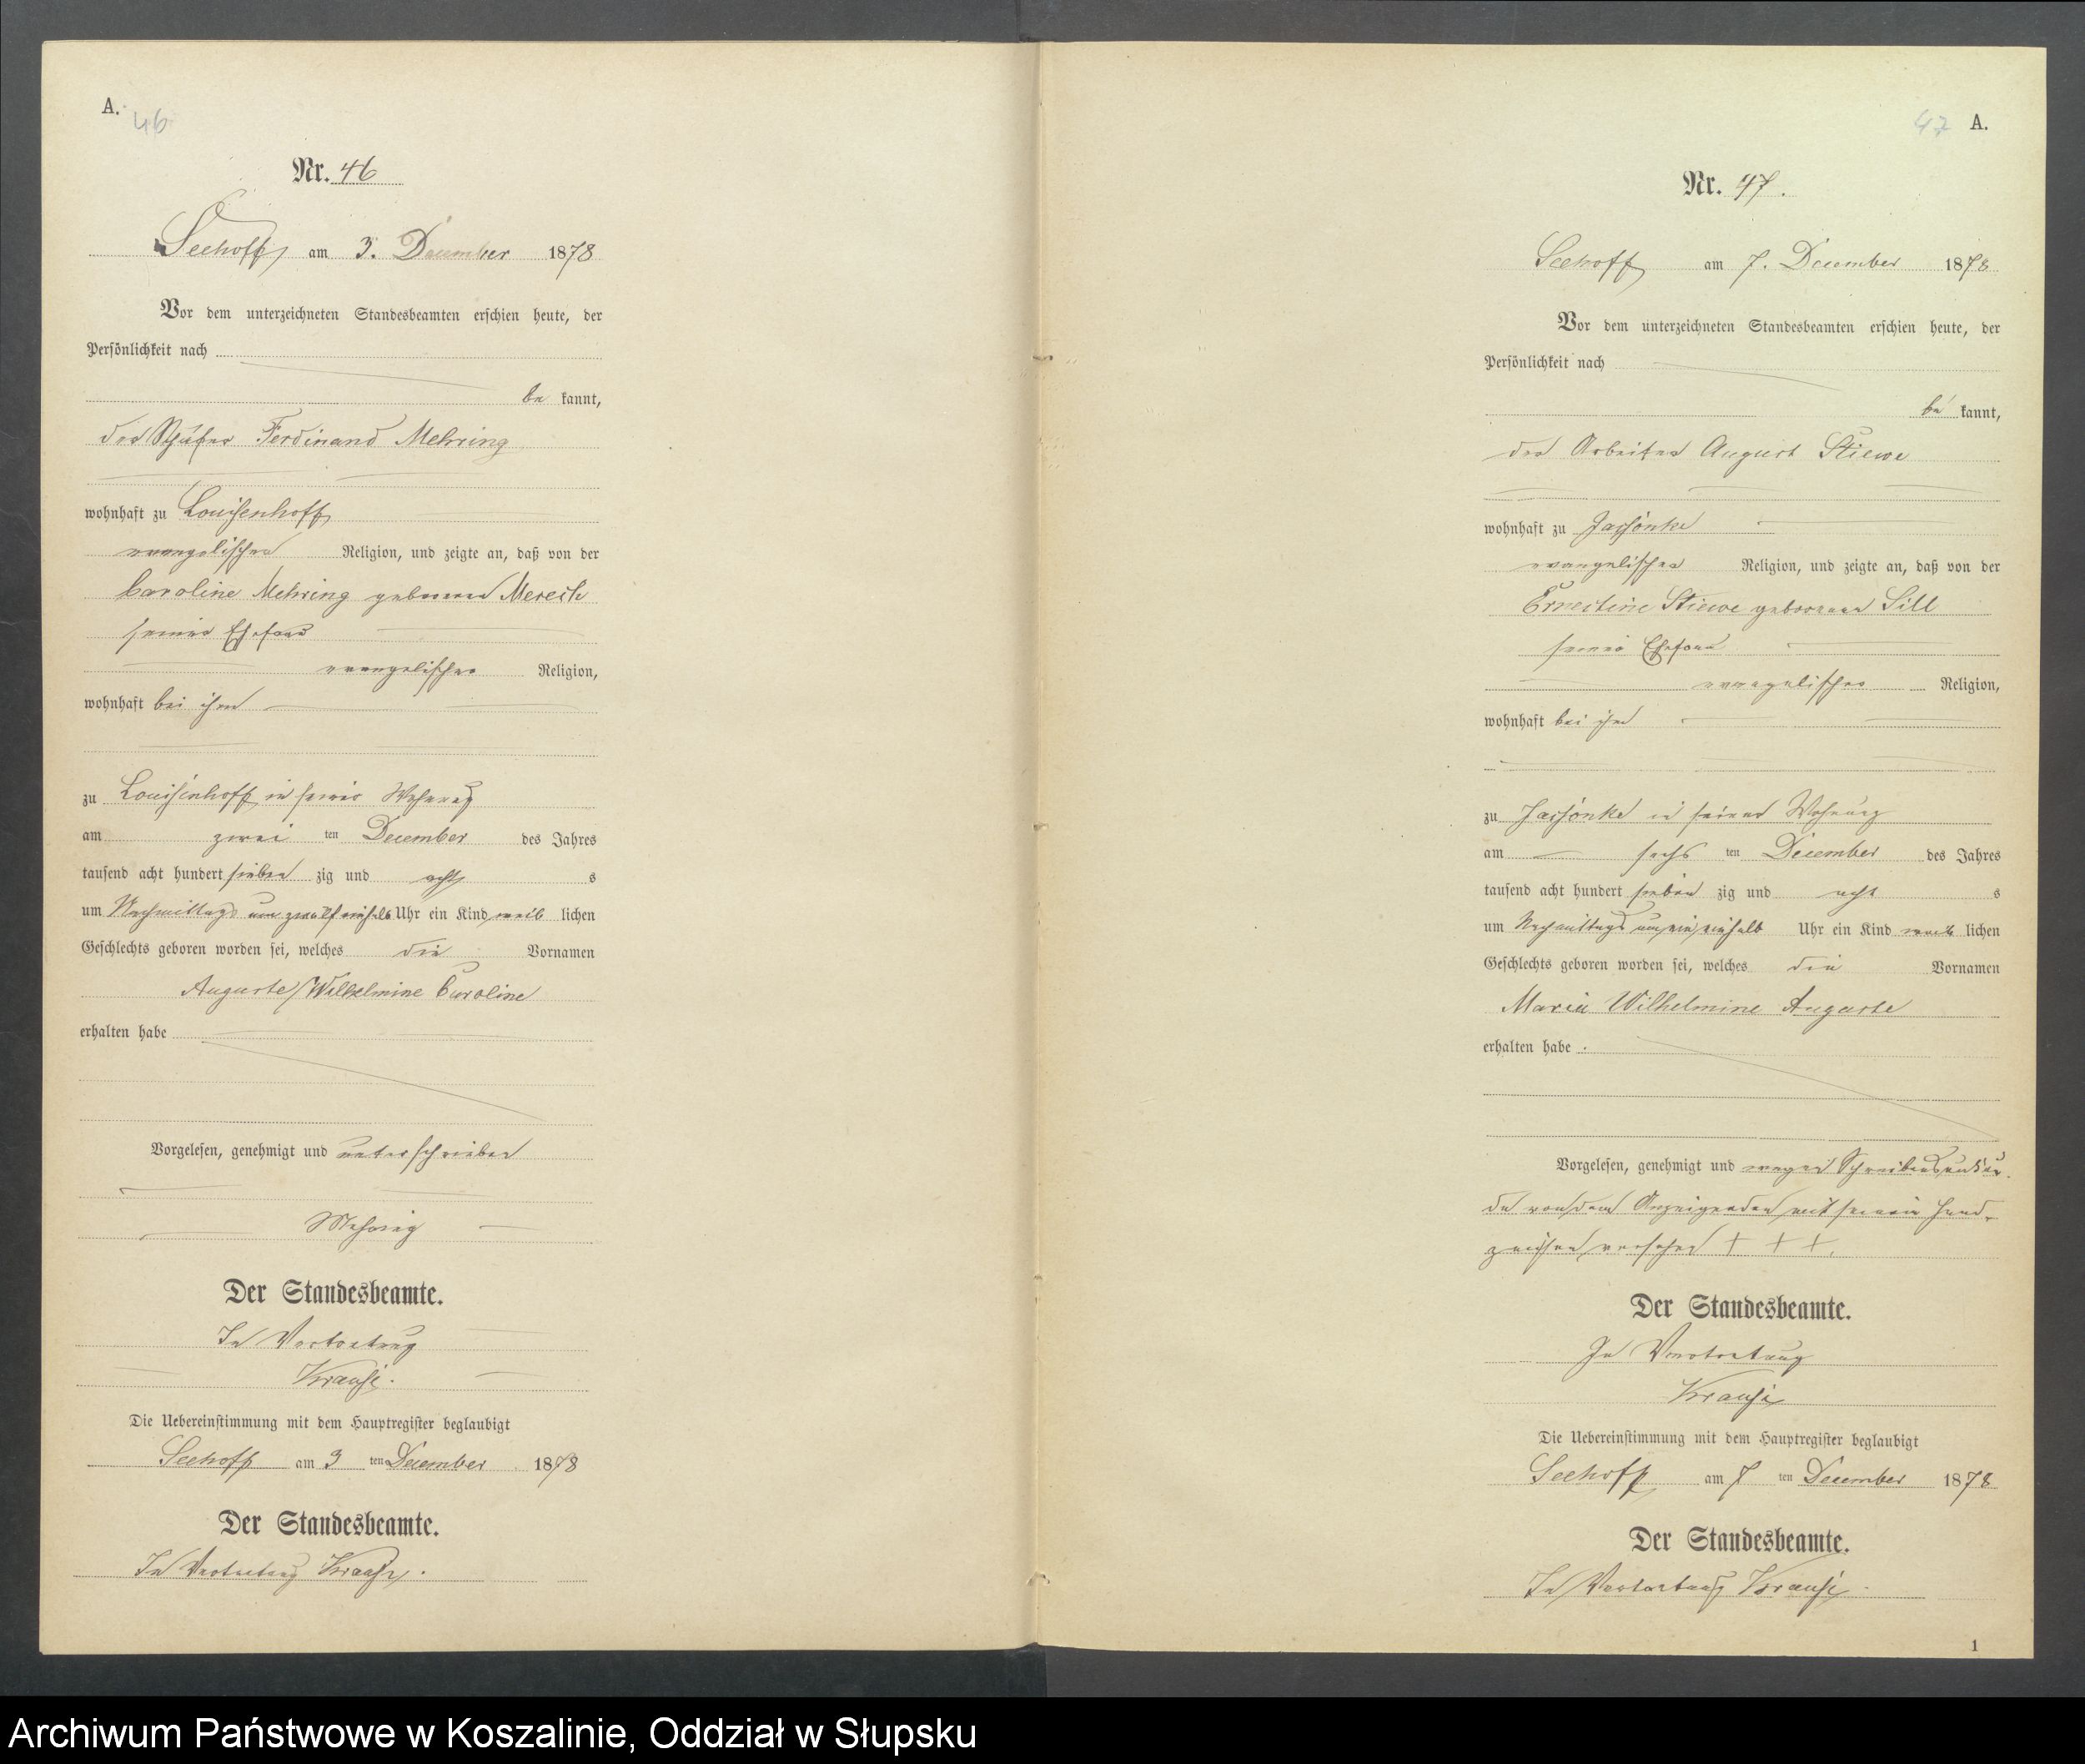 A.
46
Nr. 46
Seehoff am 3. December 1878
Vor dem unterzeichneten Standesbeamten erschien heute, der
Persönlichkeit nach
be kannt,
der Schäfer Ferdinand Mehring
wohnhaft zu Louisenhoff
evangelischer Religion, und zeigte an, daß von der
Caroline Mehring geborene
seiner Ehefrau
evangelischer Religion,
wohnhaft bei ihm
zu Louisenhoff in seiner Wohnung
am zwei ten December des Jahres
tausend acht hundert sieben zig und acht s
um Nachmittags um zwölf einhalb Uhr ein Kind weib lichen
Geschlechts geboren worden sei, welches die Vornamen
Auguste Wilhelmine Caroline
erhalten habe
Vorgelesen, genehmigt und unterschrieben
Mehring
Der Standesbeamte.
In Vertretung
Krause.
Die Uebereinstimmung mit dem Hauptregister beglaubigt
Seehoff am 3 ten December 1878
Der Standesbeamte.
In Vertretung Krause.
47 A.
Nr. 47.
Seehoff am 7. December 1878
Vor dem unterzeichneten Standesbeamten erschien heute, der
Persönlichkeit nach
be kannt,
der Arbeiter August Stiewe
wohnhaft zu Jassonke
evangelischer Religion, und zeigte an, daß von der
Ernestine Stiewe geborenen Sill
seiner Ehefrau
evangelischer Religion,
wohnhaft bei ihm
zu Jassonke in seiner Wohnung
am sechs ten December des Jahres
tausend acht hundert sieben zig und acht s
um Nachmittags um ein einhalb Uhr ein Kind weib lichen
Geschlechts geboren worden sei, welches die Vornamen
Marie Wilhelmine Auguste
erhalten habe.
Vorgelesen, genehmigt und wegen Schreibensunkun-
de von dem Anzeigenden mit seinem Hand-
zeichen versehen + + +.
Der Standesbeamte.
In Vertretung
Krause
Die Uebereinstimmung mit dem Hauptregister beglaubigt
Seehoff am 7 ten December 1878
Der Standesbeamte.
In Vertretung Krause.
1
Archiwum Państwowe w Koszalinie, Oddział w Słupsku